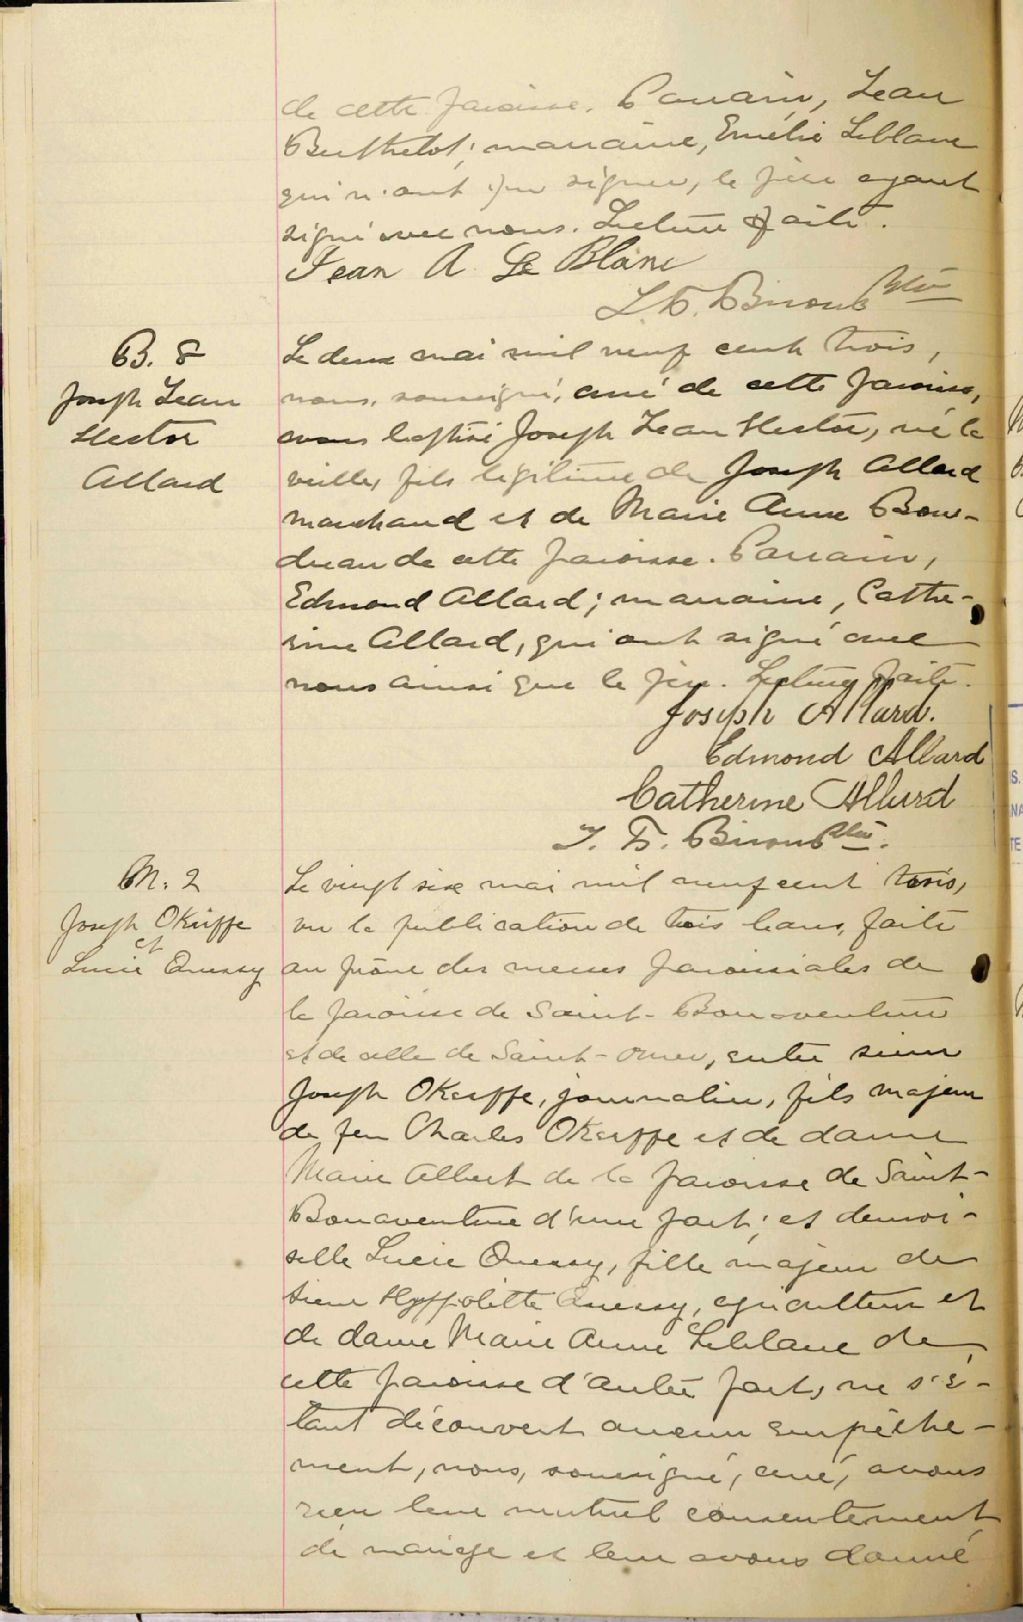 de cette paroisse. Parrain, Jean
Berthelot; marraine, Emélie Leblanc
qui n'ont pu signer, le père ayant
signé avec nous. Lecture faite.
Jean A Le Blanc
Ptre
B. 8
Joseph Jean
Hector
Allard
Le deux mai mil neuf cent trois,
nous, soussigné, curé de cette paroisse,
avons baptisé Joseph Jean Hector, né la
veille, fils légitime de Joseph Allard
marchand et de Marie Anne Bour-
deau de cette paroisse. Parrain,
Edmond Allard; marraine, Cathe-
rine Allard, qui ont signé avec
nous ainsi que le père. Lecture faite.
Joseph Allard.
Edmond Allard
Catherine Allard
Ptre.
M. 2
Joseph OKeiffe
et
Lucie Quessy
Le vingt six mai mil neuf cent trois,
vu la publication de trois bans, faite
au prône des messes paroissiales de
la paroisse de Saint-Bonaventure
et de celle de Saint-Omer, entre sieur
Joseph OKeiffe, journalier, fils majeur
de feu Charles OKeiffe et de dame
Marie Albert de la paroisse de Saint-
Bonaventure d'une part; et demoi-
selle Lucie Quessy, fille majeur de
sieur Hyppolitte Quessy, agriculteur et
de dame Marie Anne Leblanc de
cette paroisse d'autre part, ne s'é-
tant découvert aucun empêche-
ment, nous, soussigné, curé, avons
reçu leur mutuel consentement
de mariage et leur avons donné